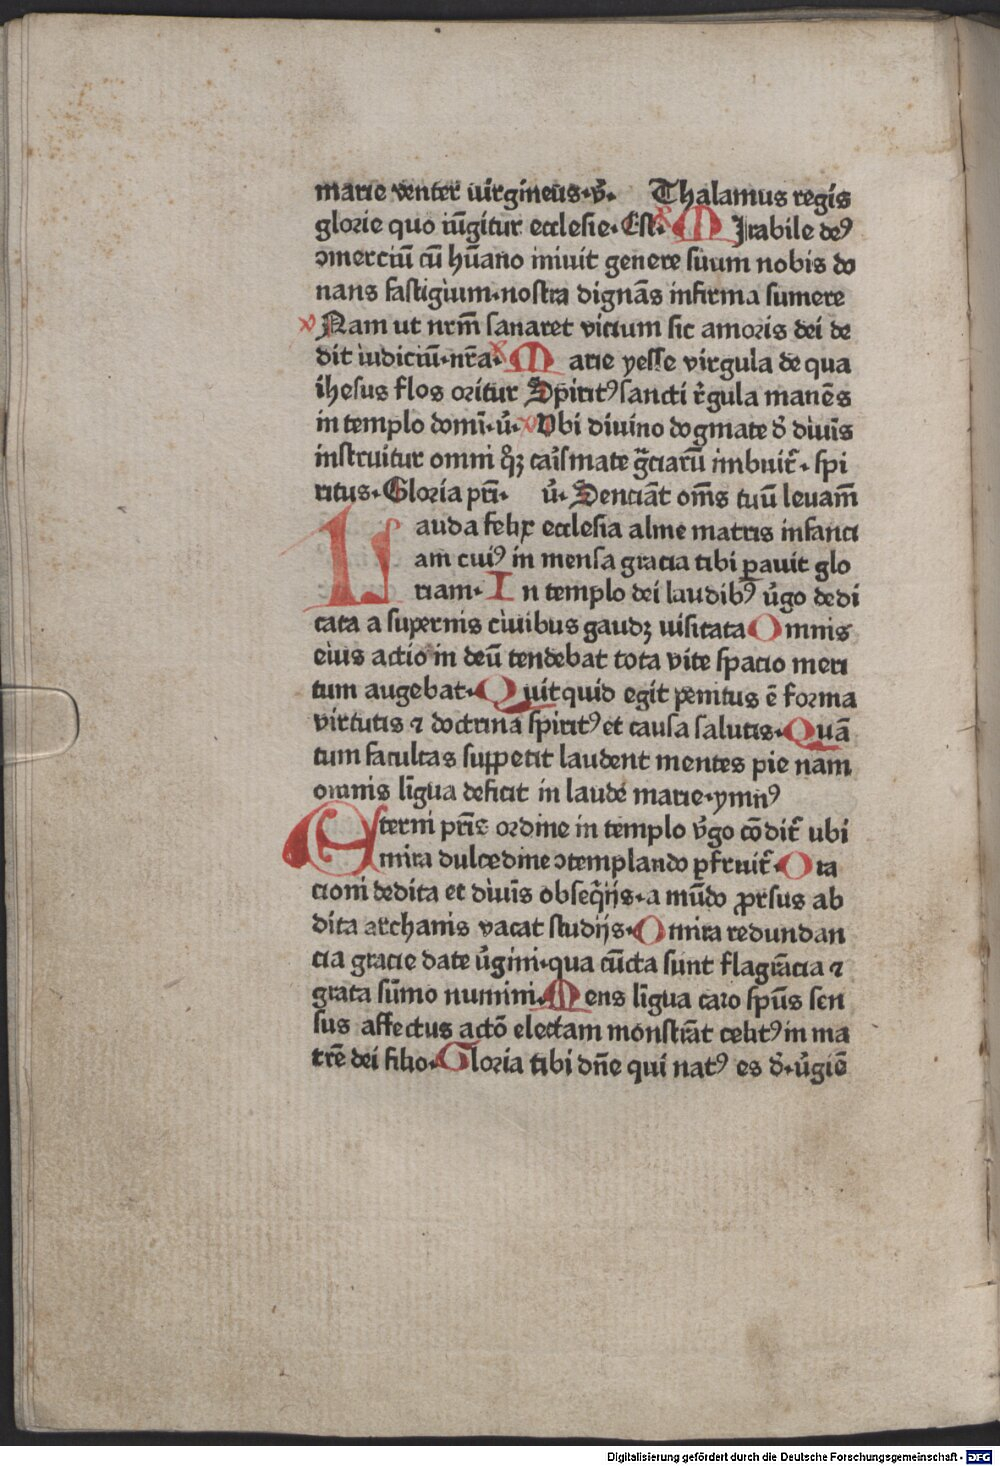 marie venter uirgineus·v̾· Thalamus regis
glorie quo iūgitur ecclesie·Est· Mirabile deꝰ
ↄmerciū cū hūano iniuit genere suum nobis do
nans fastigium·nostra dignās infirma sumere
Nam ut nrm̄ sanaret vicium sic amoris dei de
dit iudiciū·nr̄a· Marie yesse virgula de qua
ihesus flos oritur Spiritꝰ sancti r̾gula manēs
in templo domī·u̾· Vbi diuino dogmate d̾ diuīs
instruitur omni qꝫ carīsmate gr̄ciarū imbuit᷑· spi
ritus·Gloria pr̄i· u̾· Senciāt om̄s tuū leuam̄
Lauda felix ecclesia alme matris infanci
am cuiꝰ in mensa gracia tibi ꝑauit glo
riam· In templo dei laudibꝰ u̾go dedi
cata a supernis ciuibus gaudꝫ uisitata Omnis
eius actio in deū tendebat tota vite spacio meri
tum augebat· Quitquid egit penitus ē forma
virtutis ⁊ doctrina spiritꝰ et causa salutis· Quā
tum facultas suppetit laudent mentes pie nam
omnis līgua deficit in laude marie·ymnꝰ
Eterni pr̄is ordine in templo v̾go cōdit᷑ ubi
mira dulcedine ↄtemplando ꝑfruit᷑· Ora
cioni dedita et diuīs obseq̄ijs·a mūdo ꝓrsus ab
dita archanis vacat studijs· O mira redundan
cia gracie date u̾gini·qua cūcta sunt flagrācia ⁊
grata sūmo numini· Mens līgua caro sp̄us sen
sus affectus actō electam monstrāt celitꝰ in ma
trē dei filio· Gloria tibi dn̄e qui natꝰ es d̾·u̾giē
Digitalisierung gefördert durch die Deutsche Forschungsgemeinschaft - DFG